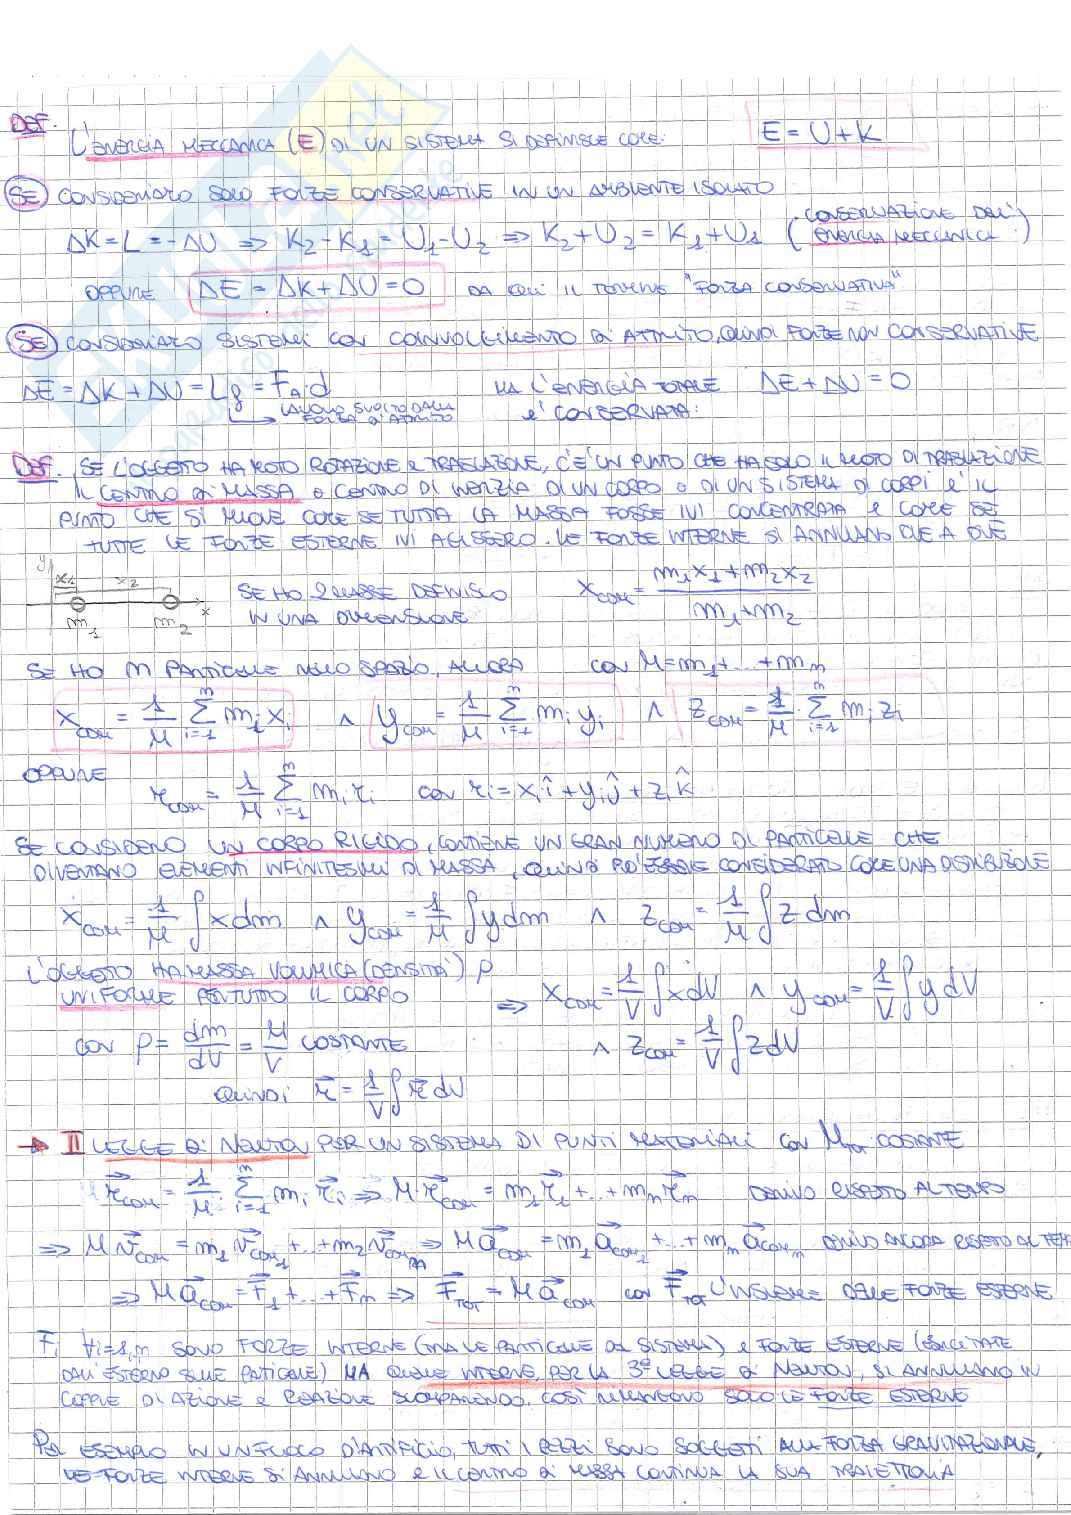 DEF.
L'ENERGIA MECCANICA (E) DI UN SISTEMA SI DEFINISCE COME: E = U + K
SE CONSIDERIAMO SOLO FORZE CONSERVATIVE IN UN AMBIENTE ISOLATO
ΔK = L = -ΔU ⇒ K₂ - K₁ = U₁ - U₂ ⇒ K₂ + U₂ = K₁ + U₁ (CONSERVAZIONE DELL'
ENERGIA MECCANICA)
OPPURE ΔE = ΔK + ΔU = 0 DA QUI IL TERMINE "FORZA CONSERVATIVA"
SE CONSIDERIAMO SISTEMI CON COINVOLGIMENTO DI ATTRITO, QUINDI FORZE NON CONSERVATIVE
ΔE = ΔK + ΔU = L = F_A · d MA L'ENERGIA TOTALE ΔE + ΔU = 0
LAVORO SVOLTO DALLA
FORZA DI ATTRITO
E' CONSERVATA.
DEF. SE L'OGGETTO HA MOTO ROTAZIONE E TRASLAZIONE, C'E' UN PUNTO CHE HA SOLO IL MOTO DI TRASLAZIONE
IL CENTRO DI MASSA O CENTRO DI INERZIA DI UN CORPO O DI UN SISTEMA DI CORPI E' IL
PUNTO CHE SI MUOVE COME SE TUTTA LA MASSA FOSSE IVI CONCENTRATA E COME SE
TUTTE LE FORZE ESTERNE IVI AGISSERO. LE FORZE INTERNE SI ANNULLANO DUE A DUE
y x₁ x₂ x
m₁ m₂
SE HO 2 MASSE DEFINISCO
IN UNA DIMENSIONE
x_COM = (m₁x₁ + m₂x₂) / (m₁ + m₂)
SE HO n PARTICELLE NELLO SPAZIO, ALLORA CON M = m₁ + ... + mₙ
x_COM = 1/M Σⁿᵢ₌₁ mᵢxᵢ ∧ y_COM = 1/M Σⁿᵢ₌₁ mᵢyᵢ ∧ z_COM = 1/M · Σⁿᵢ₌₁ mᵢzᵢ
OPPURE
r_COM = 1/M Σⁿᵢ₌₁ mᵢrᵢ CON rᵢ = xᵢî + yᵢĵ + zᵢk̂
SE CONSIDERO UN CORPO RIGIDO, CONTIENE UN GRAN NUMERO DI PARTICELLE CHE
DIVENTANO ELEMENTI INFINITESIMI DI MASSA, QUINDI PUO' ESSERE CONSIDERATO COME UNA DISTRIBUZIONE
x_COM = 1/M ∫ x dm ∧ y_COM = 1/M ∫ y dm ∧ z_COM = 1/M ∫ z dm
L'OGGETTO HA MASSA VOLUMICA (DENSITA') ρ
UNIFORME PER TUTTO IL CORPO
⇒ x_COM = 1/V ∫ x dV ∧ y_COM = 1/V ∫ y dV
CON ρ = dm/dV = M/V COSTANTE ∧ z_COM = 1/V ∫ z dV
QUINDI r⃗ = 1/V ∫ r⃗ dV
→ II LEGGE DI NEWTON PER UN SISTEMA DI PUNTI MATERIALI CON M_TOT COSTANTE
r⃗_COM = 1/M · Σⁿᵢ₌₁ mᵢ r⃗ᵢ ⇒ M · r⃗_COM = m₁r⃗₁ + ... + mₙr⃗ₙ DERIVO RISPETTO AL TEMPO
⇒ M v⃗_COM = m₁ v⃗_COM₁ + ... + m₂ v⃗_COMₙ ⇒ M a⃗_COM = m₁ a⃗_COM₁ + ... + mₙ a⃗_COMₙ DERIVO ANCORA RISPETTO AL
⇒ M a⃗_COM = F⃗₁ + ... + F⃗ₙ ⇒ F⃗_TOT = M a⃗_COM CON F⃗_TOT L'INSIEME DELLE FORZE ESTERNE
Fᵢ ∀i=1,n SONO FORZE INTERNE (TRA LE PARTICELLE DEL SISTEMA) E FORZE ESTERNE (ESERCITATE
DALL'ESTERNO SULLE PATICELLE) MA QUELLE INTERNE, PER LA 3ª LEGGE DI NEWTON, SI ANNULLANO IN
COPPIE DI AZIONE E REAZIONE SCOMPARENDO. COSÌ RIMANGONO SOLO LE FORZE ESTERNE
PER ESEMPIO IN UN FUOCO D'ARTIFICIO, TUTTI I PEZZI SONO SOGGETTI ALLA FORZA GRAVITAZIONALE,
LE FORZE INTERNE SI ANNULLANO E IL CENTRO DI MASSA CONTINUA LA SUA TRAIETTORIA